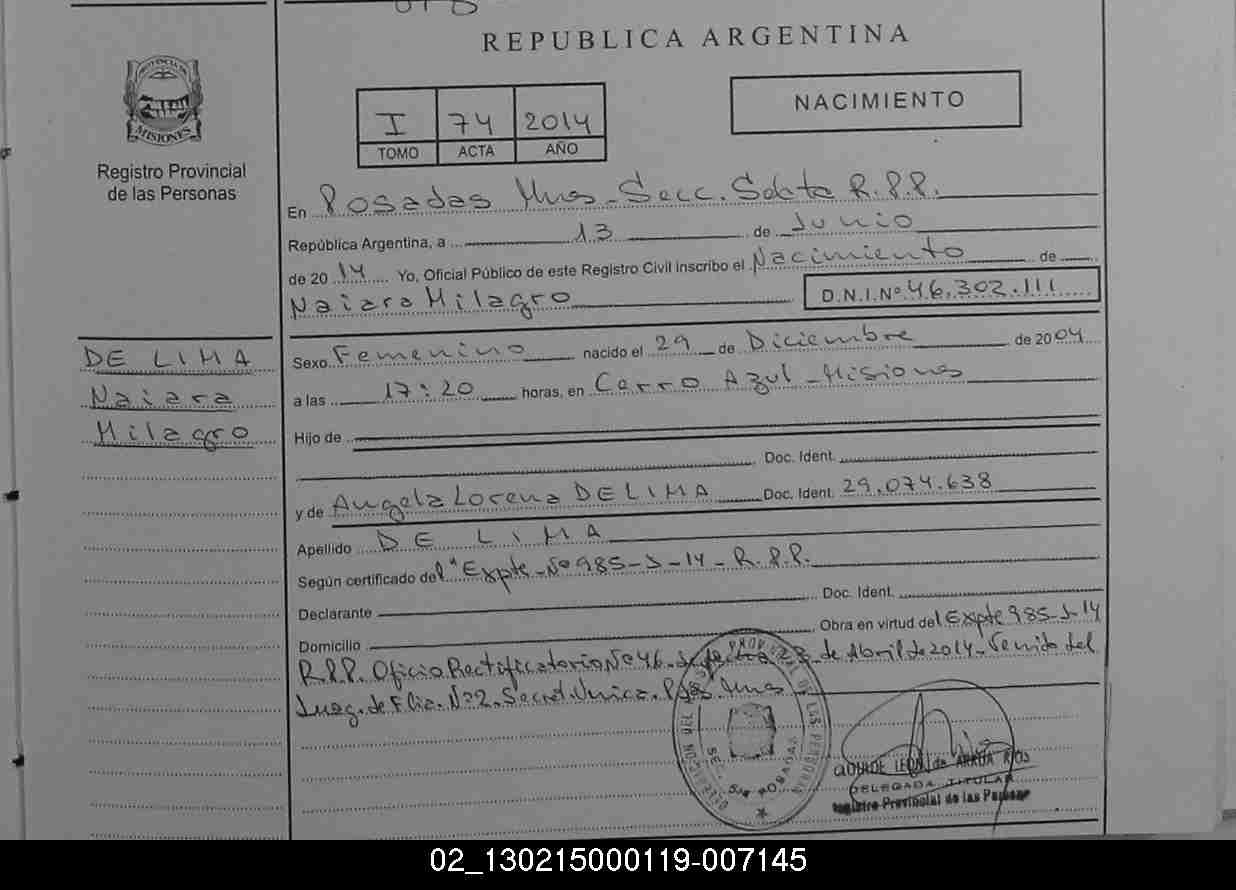 REPUBLICA ARGENTINA
PROVINCIA DE
MISIONES
Registro Provincial
de las Personas
I 74 2014
TOMO ACTA AÑO
NACIMIENTO
En Posadas Mnes - Secc. Sexta R.P.P.
República Argentina, a 13 de Junio
de 20 14 Yo, Oficial Público de este Registro Civil inscribo el Nacimiento de
Naiara Milagro D.N.I.Nº 46.302.111
DE LIMA
Naiara
Milagro
Sexo Femenino nacido el 29 de Diciembre de 2004
a las 17:20 horas, en Cerro Azul - Misiones
Hijo de
Doc. Ident.
y de Angela Lorena DE LIMA Doc. Ident. 29.074.638
Apellido DE LIMA
Según certificado del Expte - Nº 985-J-14 - R.P.P.
Declarante Doc. Ident.
Domicilio Obra en virtud del Expte 985-J-14
R.P.P. Oficio Rectificatorio Nº 46 - de fecha 23 de Abril de 2014 - Venido del
Juzg. de Flia. Nº 2. Secret. Unica. Pdas. Mnes
DELEGADA TITULAR
Registro Provincial de las Personas
02_130215000119-007145